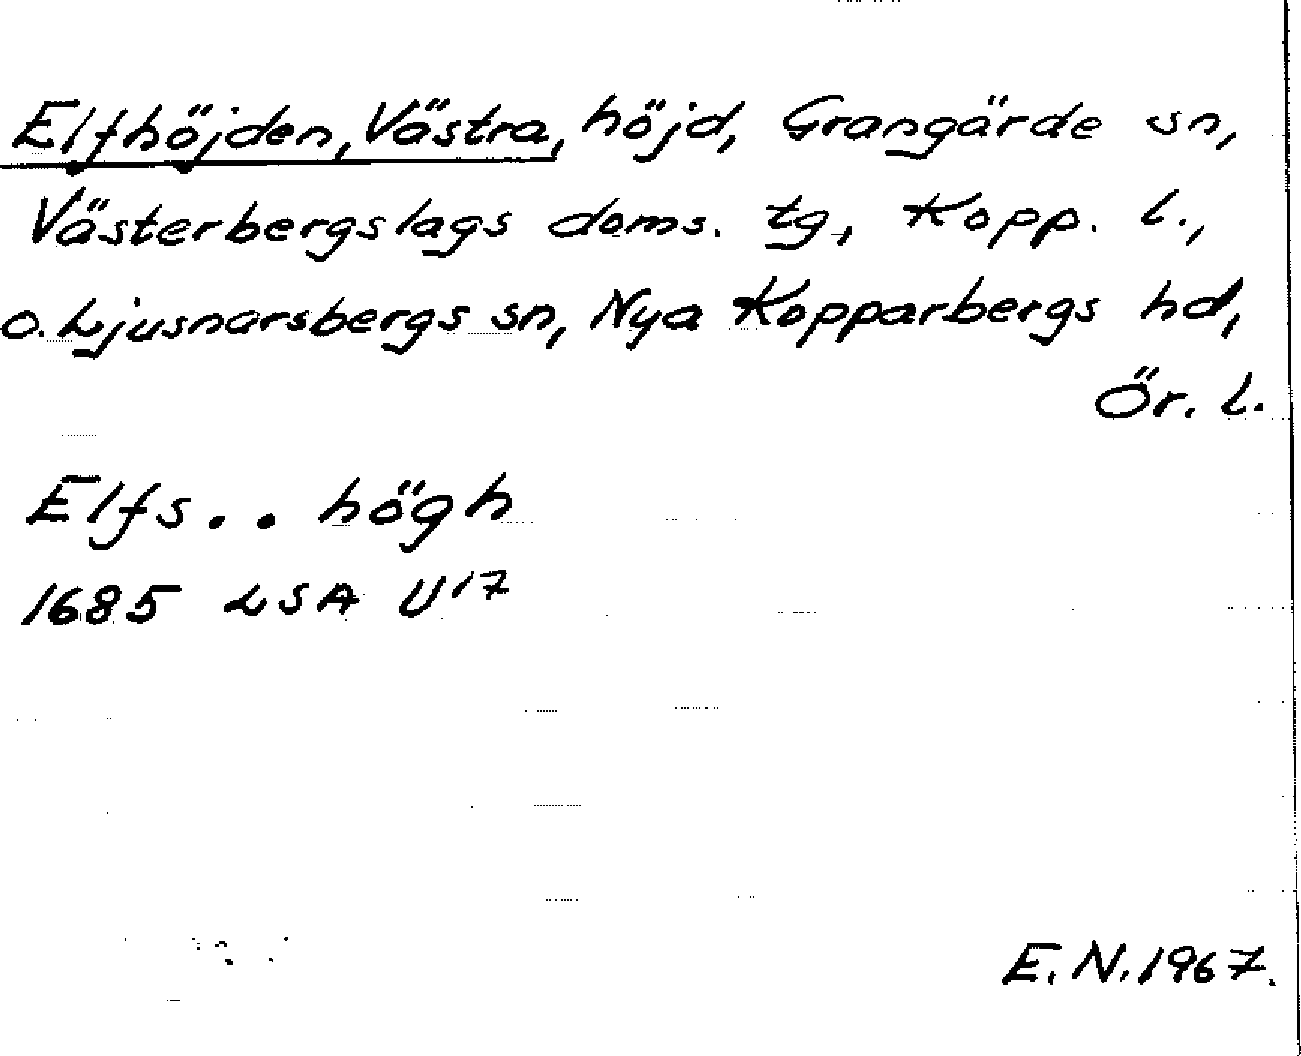 Elfhöjden, Västra, höjd, Grangärde sn,
Västerbergslags doms. tg, Kopp. l.,
o. Ljusnarsbergs sn, Nya Kopparbergs hd,
Ör. l.
Elfs.. högh
1685 LSA U17
E.N.1967.